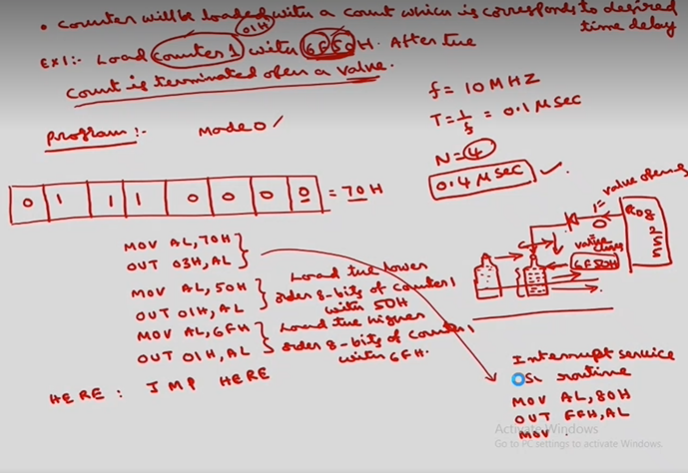 • Counter will be loaded with a count which is corresponds to desired
time delay
01H
Ex1:- Load Counter 1 with 6F50H. After the
count is terminated open a valve.
f = 10 MHZ
T = 1/f = 0.1 Msec
Program :- Mode 0
N = 4
0.4 Msec
0 1 1 1 0 0 0 0 = 70H
1 = valve open
0
valve close
6F50H
MOV AL, 70H
OUT 03H, AL
MOV AL, 50H
OUT 01H, AL
Load the lower
order 8-bits of Counter 1
with 50H
MOV AL, 6FH
OUT 01H, AL
Load the higher
order 8-bits of Counter 1
with 6FH.
HERE : JMP HERE
Interrupt service
routine
MOV AL, 80H
OUT FFH, AL
MOV
Activate Windows
Go to PC settings to activate Windows.